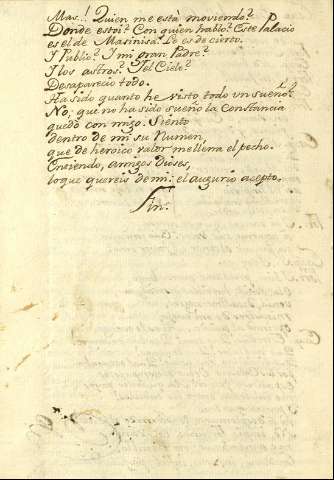 Mas..! Quien me està moviendo?
Donde estoi? Con quien hablo? Este Palacio
es el de Masinisa. Lo es de cierto.
Y Publio? Y mi gran Padre?
Y los astros? Y el Cielo?
Desapareciò todo.
Ha sido quanto he visto todo un sueño?
No, que no ha sido sueño la Constancia
quedò con migo. Siento
dentro de mi su Numen,
que de heroico valor me llena el pecho.
Entiendo, amigos Dioses,
lo que quereis de mi: el augurio acepto.
Fin.